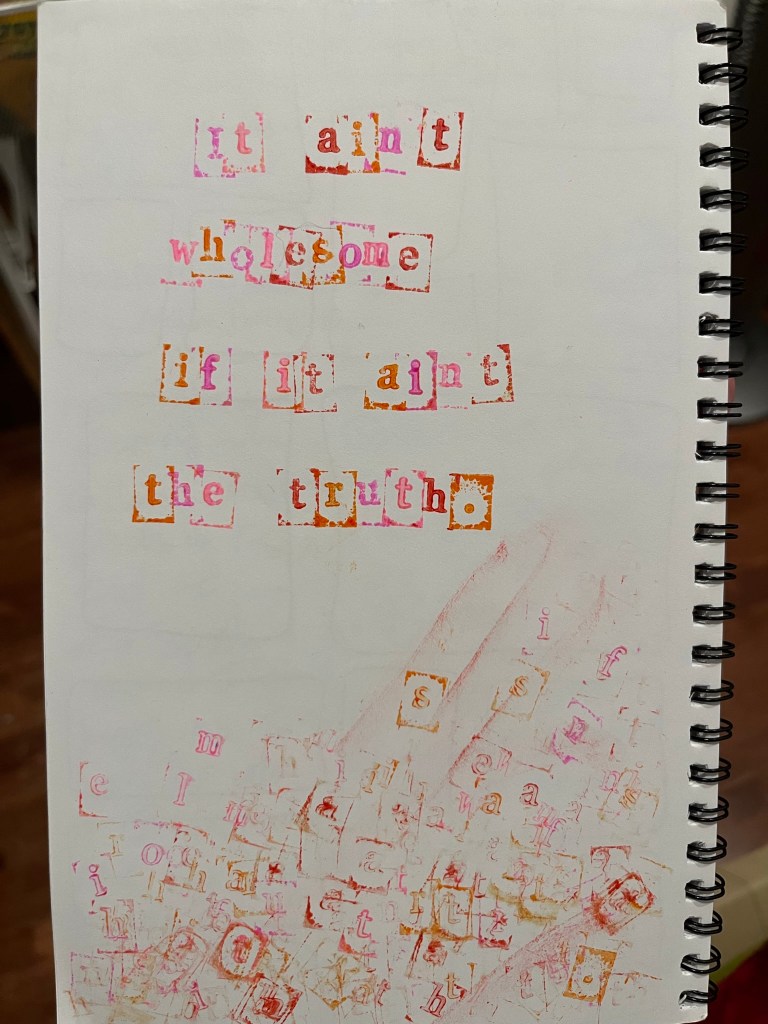 It aint
wholesome
if it aint
the truth.